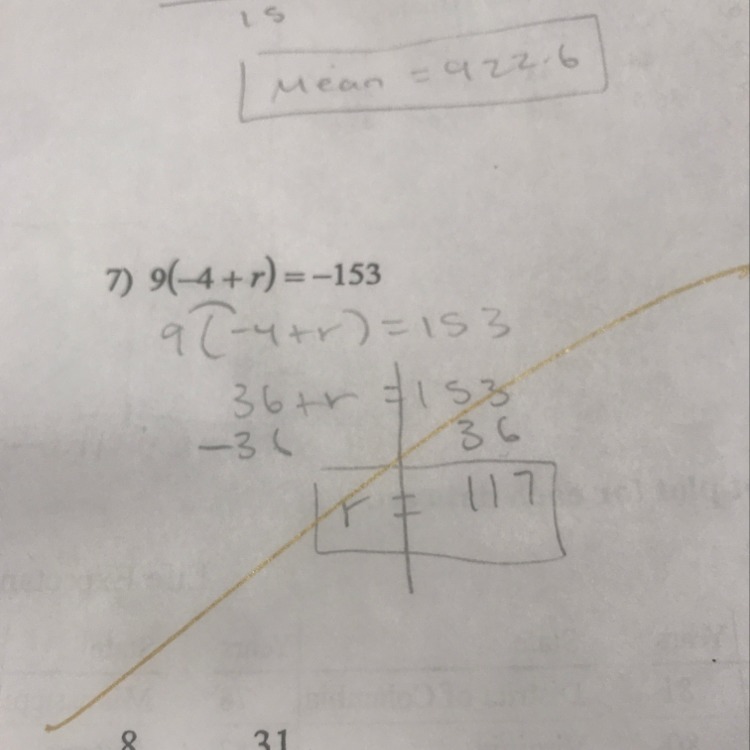 15
Mean = 922.6
7) 9(–4 + r) = –153
9(-4+r) = 153
36+r = 153
-36 36
r = 117
8 31